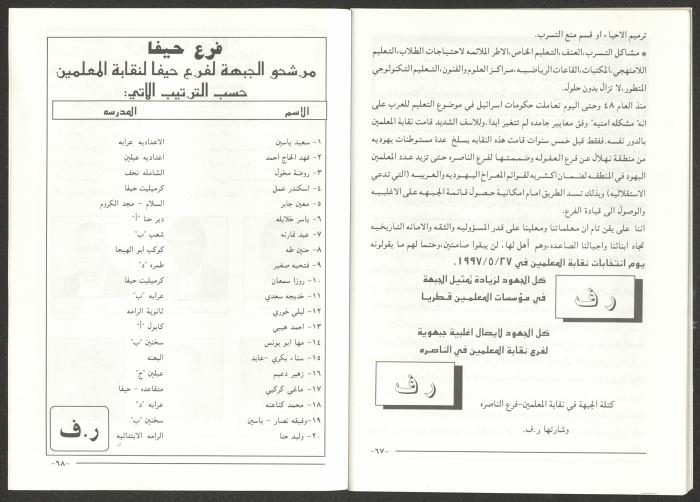 ترميم الاحياء او قسم منع التسرب.
* مشاكل التسرب، العنف، التعليم الخاص، الاطر الملائمه لاحتياجات الطلاب، التعليم
اللامنهجي، المكتبات، القاعات الرياضيه، مراكز العلوم والفنون، التعليم التكنولوجي
المتطور، لا تزال بدون حلول.
منذ العام ٤٨ وحتى اليوم تعاملت حكومات اسرائيل في موضوع التعليم للعرب على
انه "مشكله امنيه" وفق معايير جامده لم تتغير ابدا، وللاسف الشديد قامت نقابة المعلمين
بالدور نفسه. ففقط قبل خمس سنوات قامت هذه النقابه بسلخ عدة مستوطنات يهوديه
من منطقة نهلال عن فرع العفوله وضمتها لفرع الناصره حتى تزيد عدد المعلمين
اليهود في المنطقه لضمان اكثريه لقوائم المعراخ اليهوديه والعربيه (التي تدعي
الاستقلاليه) وبذلك تسد الطريق امام امكانية حصول قائمة الجبهه على الاغلبيه
والوصول الى قيادة الفرع.
اننا على يقن تام ان معلماتنا ومعلمينا على قدر المسؤوليه والثقه والامانه التاريخيه
تجاه ابنائنا واجيالنا الصاعده، وهم أهل لها، لن يبقوا صامتين، وحتما لهم ما يقولونه
يوم انتخابات نقابة المعلمين في ١٩٩٧/٥/٢٧.
كل الجهود لزيادة تمثيل الجبهة
في مؤسسات المعلمين قطريا
ر. ف
كل الجهود لايصال اغلبية جبهوية
لفرع نقابة المعلمين في الناصره
ر. ف
كتلة الجبهة في نقابة المعلمين-فرع الناصره
وشارتها ر.ف.
-٦٧-
فرع حيفا
مرشحو الجبهة لفرع حيفا لنقابة المعلمين
حسب الترتيب الآتي:
الاسم المدرسه
١- سعيد ياسين الاعداديه عرابه
٢- فهد الحاج احمد اعداديه عبلين
٣- روضة مخول الشامله نحف
٤- اسكندر عمل كرمليت حيفا
٥- معين جابر السلام - مجد الكروم
٦- ياسر خلايله دير حنا "أ"
٧- عبد نمارنه شعب "ب"
٨- حنين طه كوكب ابو الهيجا
٩- فتحيه صغير طمره "د"
١٠- روزا سمعان كرمليت حيفا
١١- خديجه سعدي عرابه "ب"
١٢- ليلى خوري ثانوية الرامه
١٣- احمد هيبي كابول "أ"
١٤- مها ابو يونس سخنين "ب"
١٥- سناء بكري -عابد البعنه
١٦- زهير دعيم عبلين "ج"
١٧- ماغي كركبي متقاعده - حيفا
١٨- محمد كناعنه عرابه "د"
١٩- وفيقه نصار - ياسين سخنين "ب"
٢٠- وليد حنا الرامه الابتدائيه
ر.ف
-٦٨-